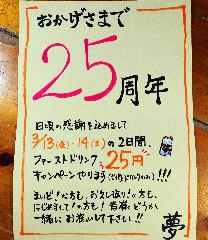 おかげさまで
25周年
日頃の感謝を込めまして
3/13(金)・14(土)の2日間、
ファーストドリンク25円
キャンペーンやります!!!
まいど!の方も、お久し振り!の方も、
はじめまして!の方も!皆様どうか
一緒にお祝いして下さい!!
夢